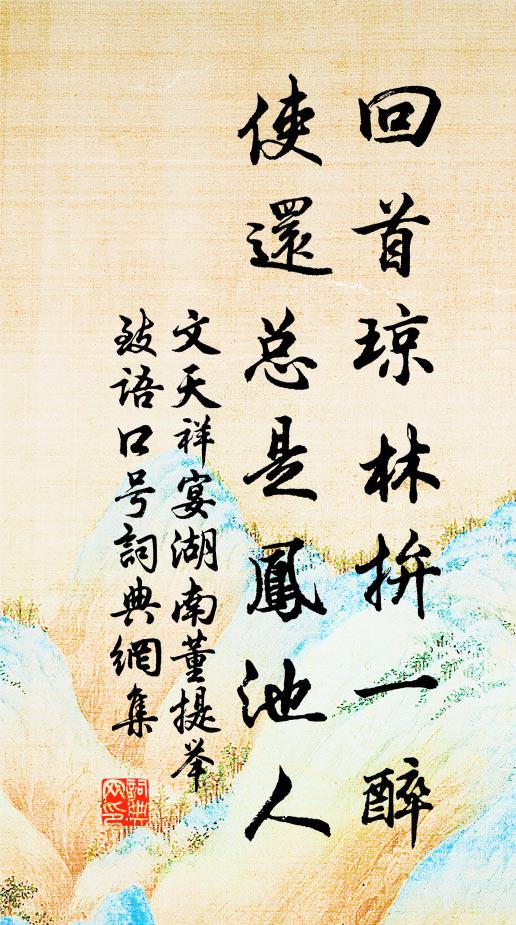 回首琼林拚一醉
使還总是鳳池人
文天祥宴湖南董提举
致语口号詞典網集
詞典網印